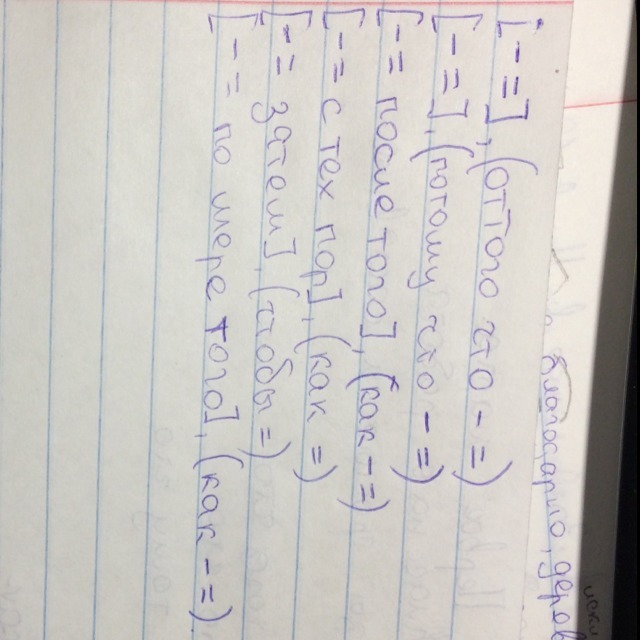 [- =], (оттого что - =)
[- =], (потому что - =)
[- = после того], (как - =)
[- = с тех пор], (как =)
[- = затем], (чтобы =)
[- = по мере того], (как - =)